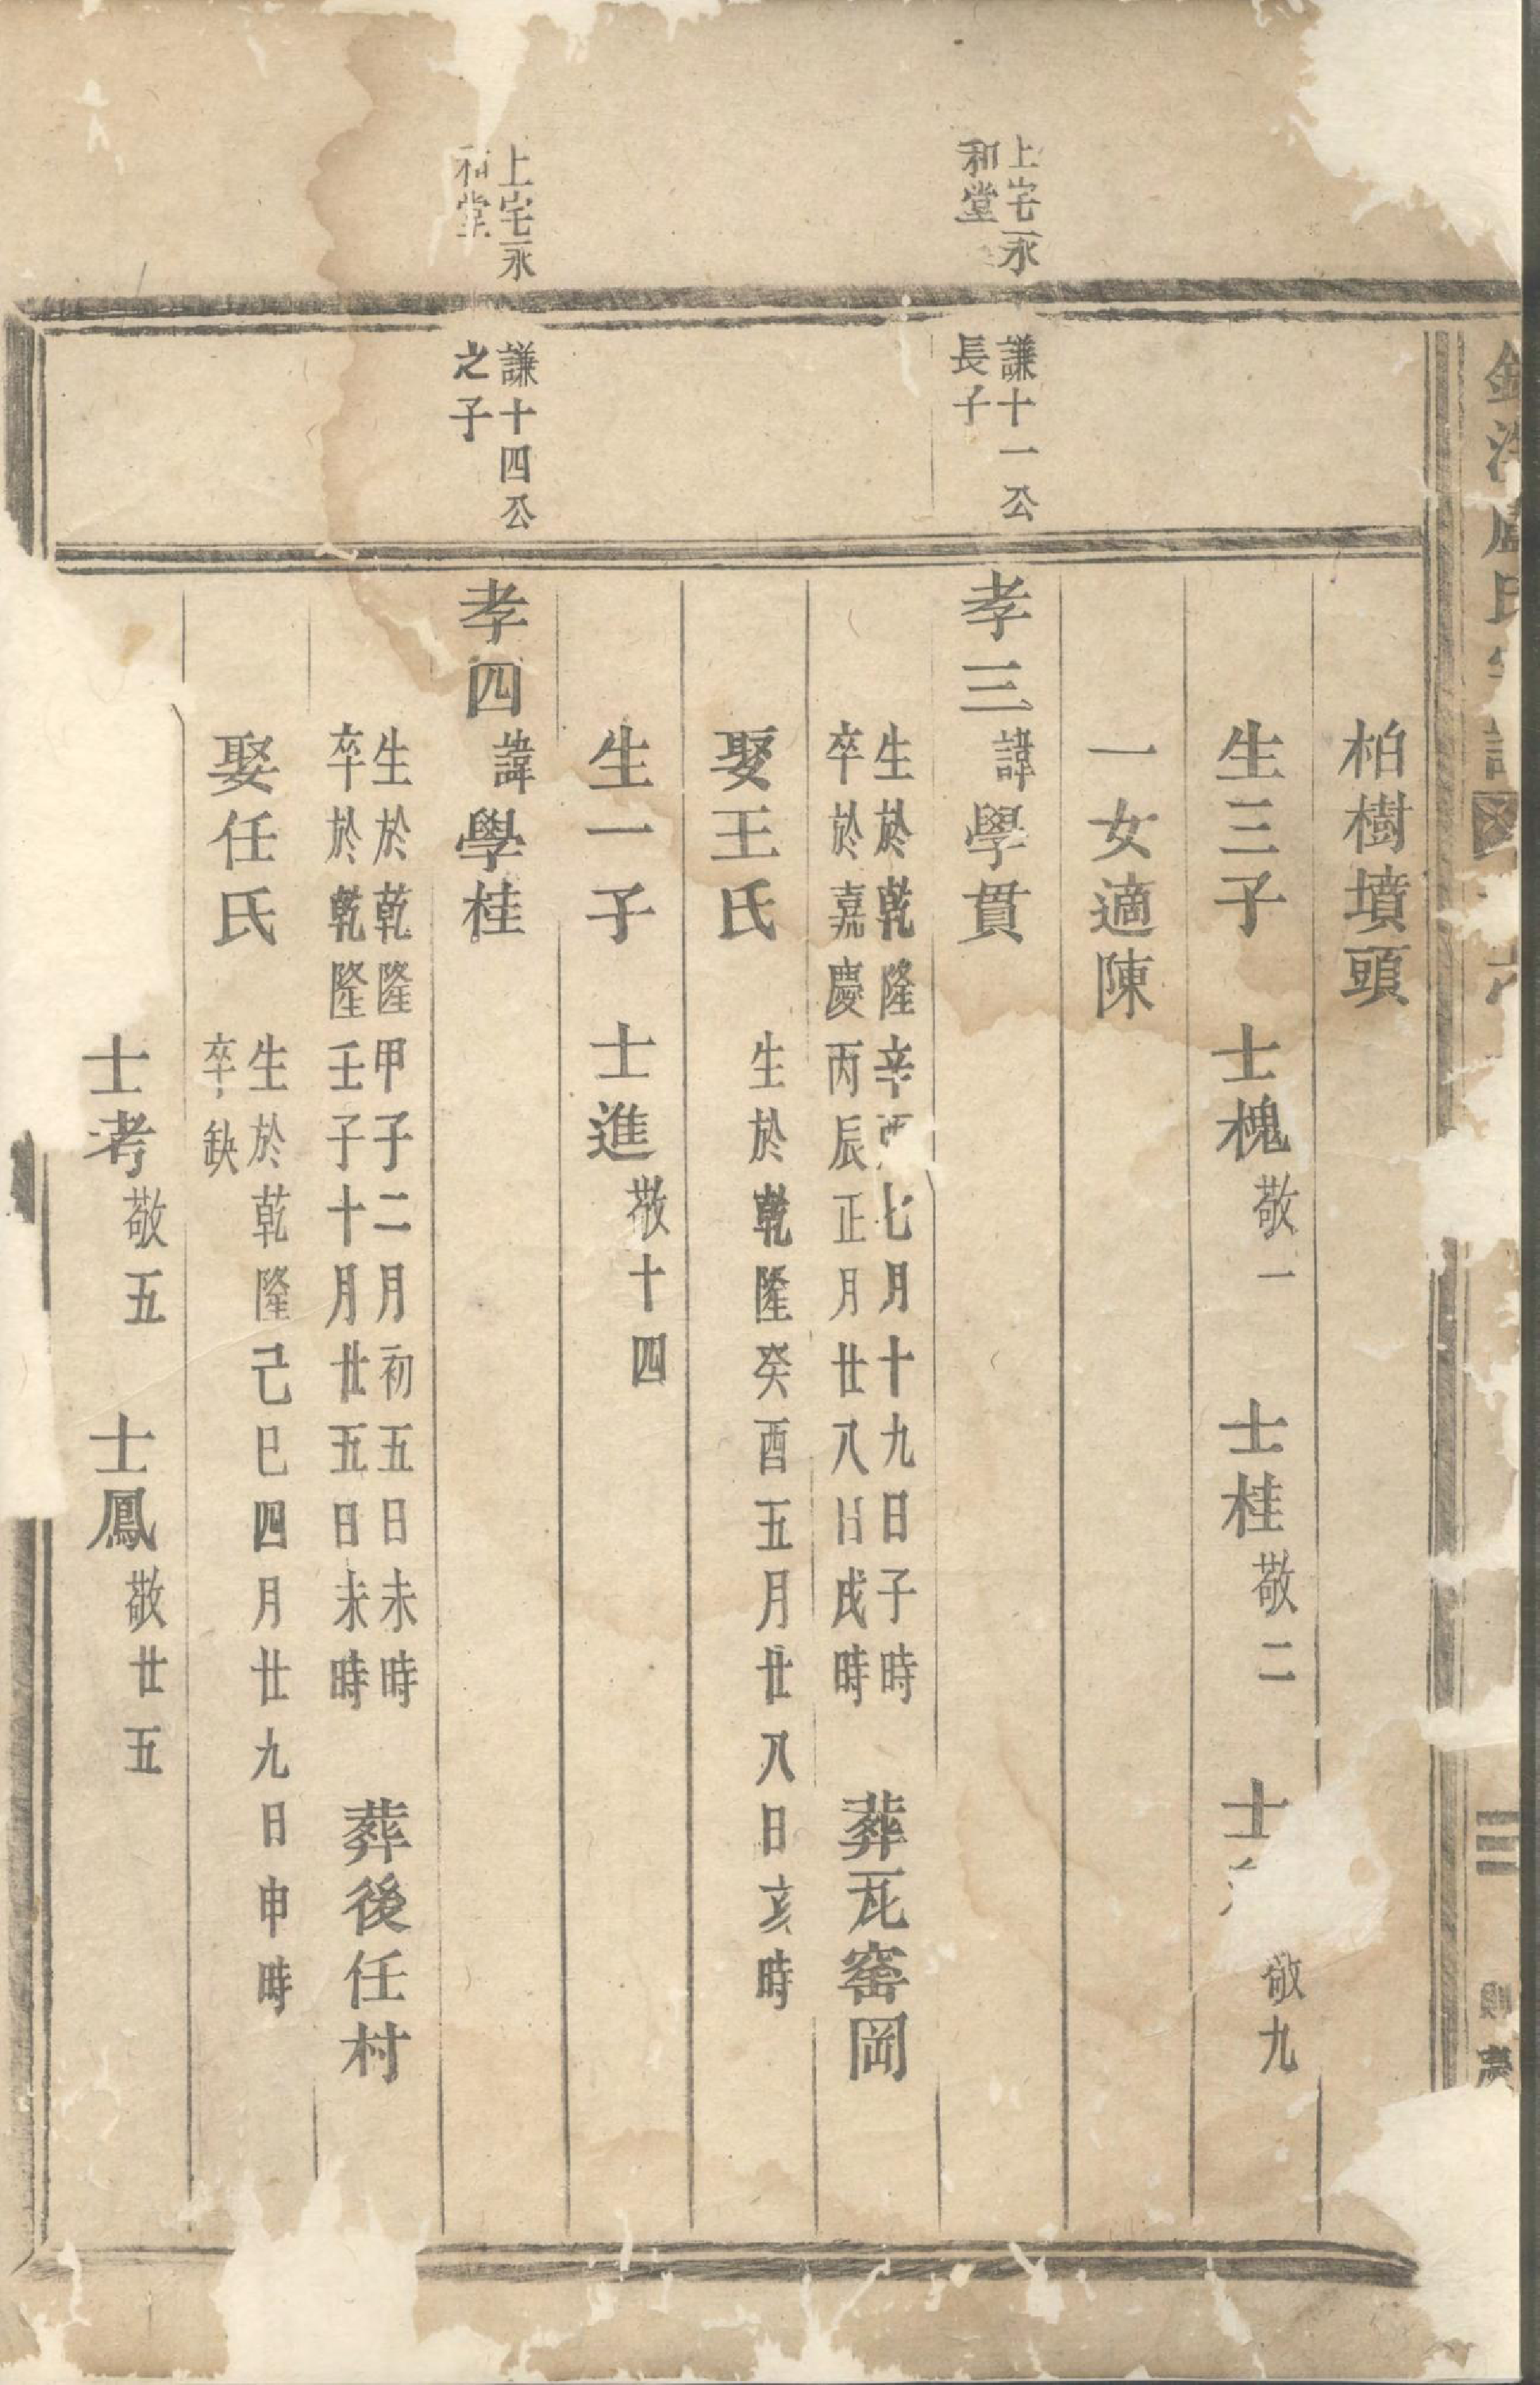 柏樹墳頭
生三子 士槐敬一 士桂敬二 士 敬九
一女適陳
上宅永
和堂
謙十一公
長子
孝三諱學貫
生於乾隆辛酉七月十九日子時
卒於嘉慶丙辰正月廿八日戌時
葬瓦窑岡
娶王氏 生於乾隆癸酉五月廿八日亥時
生一子 士進敬十四
上宅永
和堂
謙十四公
之子
孝四諱學桂
生於乾隆甲子二月初五日未時
卒於乾隆壬子十月廿五日未時
葬後任村
娶任氏
生於乾隆己巳四月廿九日申時
卒缺
士考敬五 士鳳敬廿五